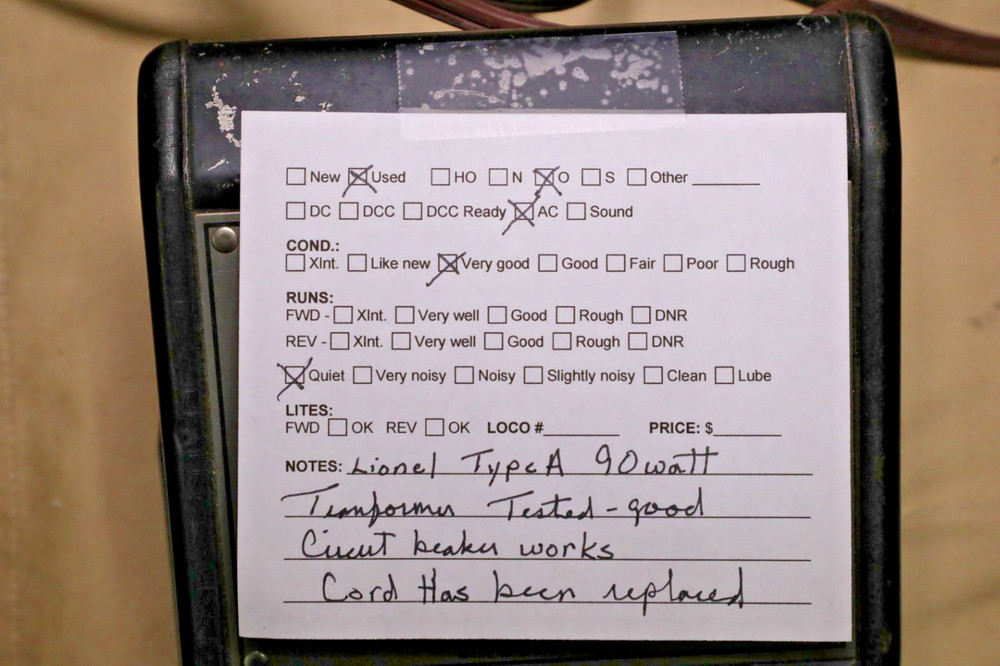 ☐ New ☒ Used ☐ HO ☐ N ☒ O ☐ S ☐ Other ________
☐ DC ☐ DCC ☐ DCC Ready ☒ AC ☐ Sound
COND.:
☐ Xlnt. ☐ Like new ☒ Very good ☐ Good ☐ Fair ☐ Poor ☐ Rough
RUNS:
FWD - ☐ Xlnt. ☐ Very well ☐ Good ☐ Rough ☐ DNR
REV - ☐ Xlnt. ☐ Very well ☐ Good ☐ Rough ☐ DNR
☒ Quiet ☐ Very noisy ☐ Noisy ☐ Slightly noisy ☐ Clean ☐ Lube
LITES:
FWD ☐ OK REV ☐ OK LOCO #________ PRICE: $________
NOTES: Lionel Type A 90watt
Tranformer Tested - good
Circut beaker works
Cord Has been replaced